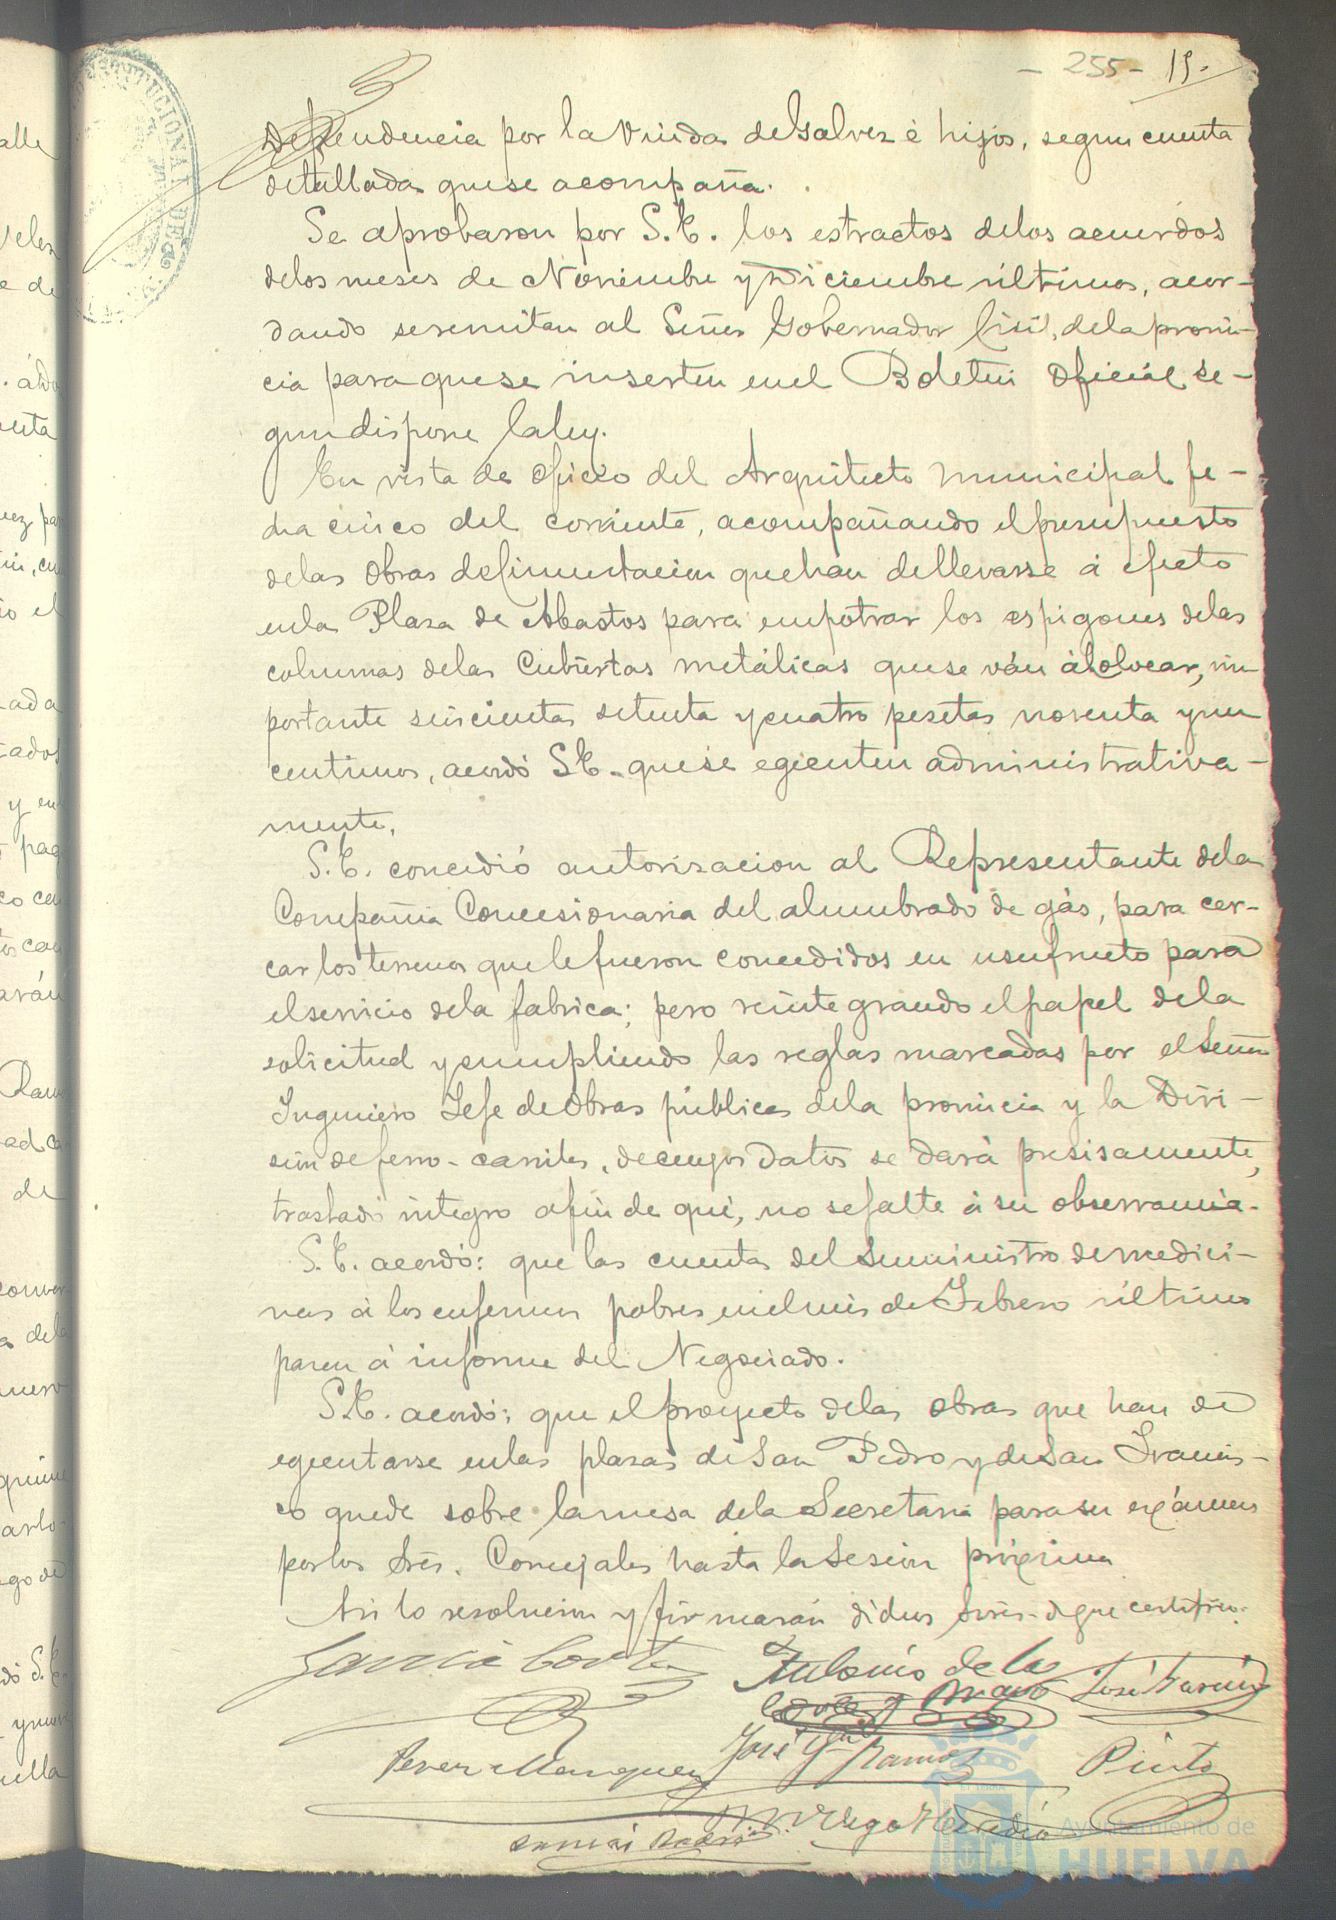 - 255 - 19.
dependencia por la Viuda de Galvez é hijos, segun cuenta
detallada que se acompaña.
Se aprobaron por S.E. los estractos de los acuerdos
de los meses de Noviembre y Diciembre últimos, acor-
dando se remitan al Señor Gobernador Civil, de la provin-
cia para que se inserten en el Boletin Oficial se-
gun dispone la ley.
En vista de oficio del Arquitecto municipal fe-
cha cinco del corriente, acompañando el presupuesto
de las Obras de cimentacion que han de llevarse á efecto
en la Plaza de Abastos para empotrar los espigones de las
columnas de las Cubiertas metálicas que se ván á colocar, im
portante seiscientas setenta y cuatro pesetas noventa y un
centimos, acordó S.E. que se egecuten administrativa-
mente.
S.E. concedió autorizacion al Representante de la
Compañia Concesionaria del alumbrado de gás, para cer-
car los terrenos que le fueron concedidos en usufructo para
el servicio de la fabrica; pero reintegrando el papel de la
solicitud y cumpliendo las reglas marcadas por el Señor
Ingeniero Jefe de Obras públicas de la provincia y la Divi-
sión de ferro-carriles, de cuyos datos se dará presisamente,
traslado integro afin de que, no se falte á su observancia.
S.E. acordó: que las cuentas del Suministro de medici-
nas á los enfermos pobres en el mes de Febrero último
pasen á informe del Negociado.
S.E. acordó: que el proyecto de las obras que han de
egecutarse en las plazas de San Pedro y de San Francis-
co quede sobre la mesa de la Secretaria para su exámen
por los Sres. Concejales hasta la Sesion próxima
Asi lo resolvieron y firmarán dichos Sres. de que certifico.
Garcia Cortes
Antonio de la
Bravo
José Garcia
Perez Marquez
José Gral Ramos
Pinto
Vgo Heredia
Ayuntamiento de
HUELVA